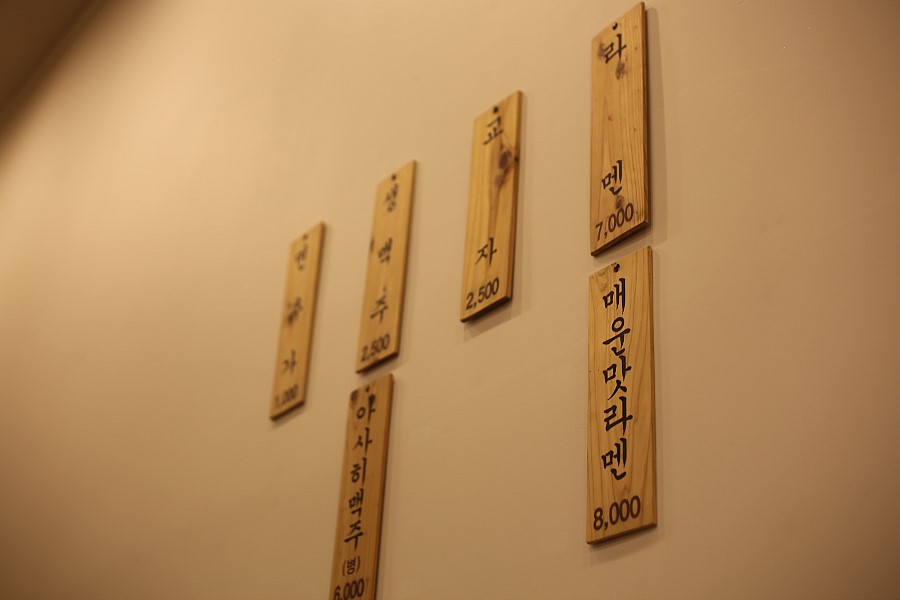 라멘
7,000
매운맛라멘
8,000
교자
2,500
생맥주
2,500
아사히맥주
(병)
6,000
면추가
1,000